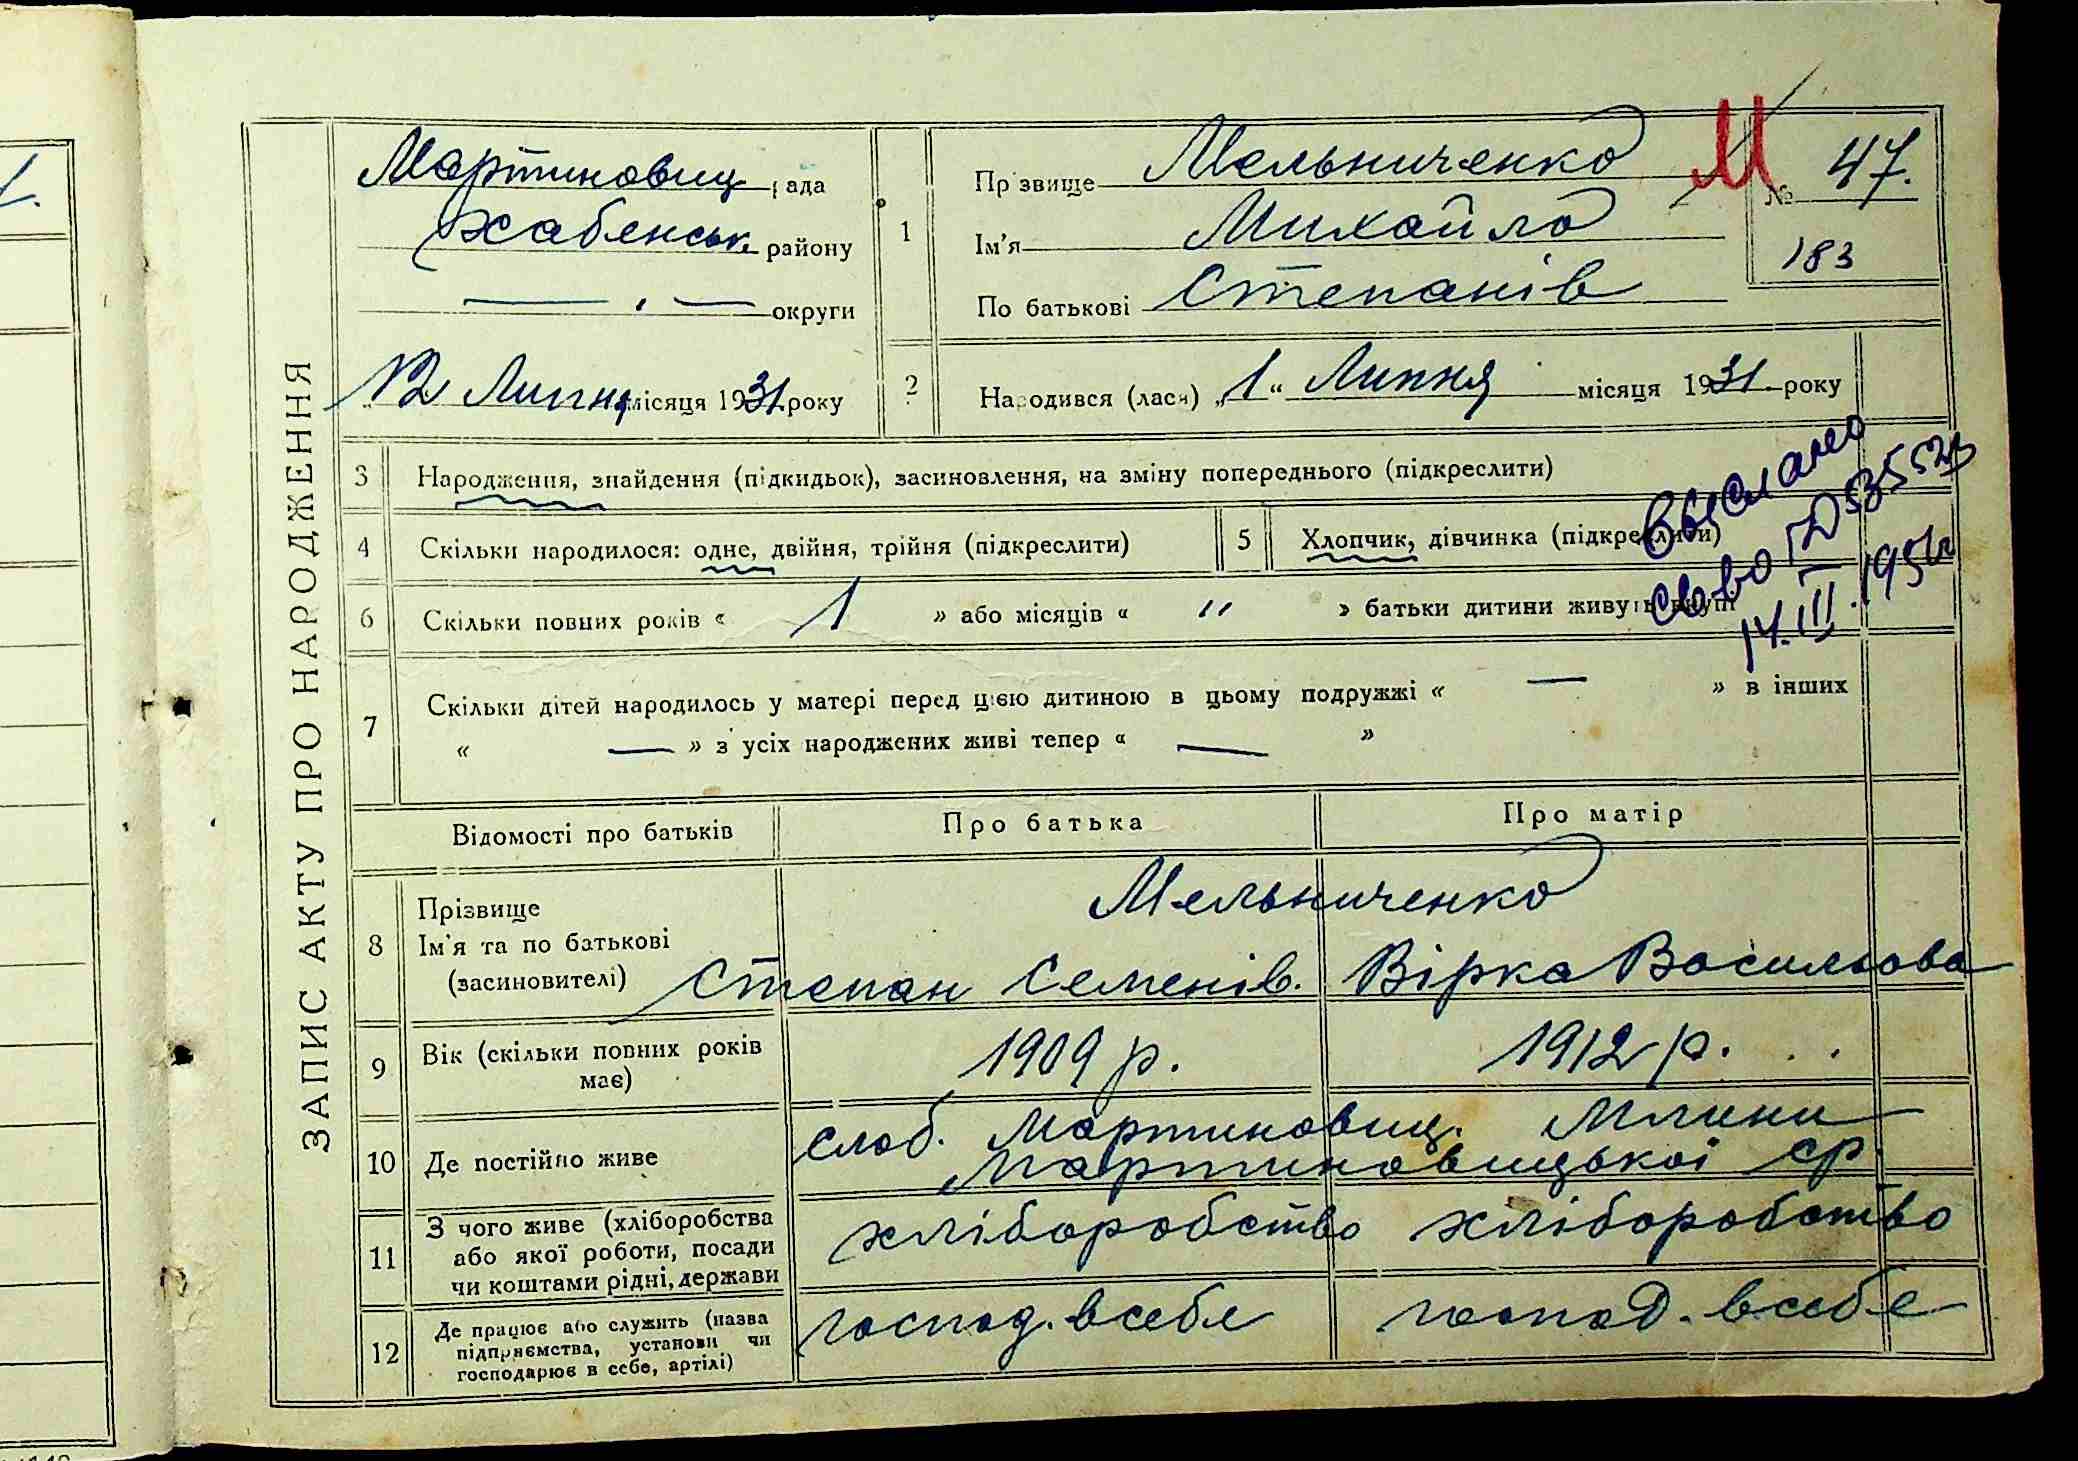 ЗАПИС АКТУ ПРО НАРОДЖЕННЯ
Мартиновиц рада
Хабенськ. району
— . — округи
„12 Липня місяця 1931 року
1
Прізвище Мельниченко
Ім'я Михайло
По батькові Степанів
М
№ 47.
183
2
Народився (лася) „1“ Липня місяця 1931 року
3 Народження, знайдення (підкидьок), засиновлення, на зміну попереднього (підкреслити)
4 Скільки народилося: одне, двійня, трійня (підкреслити)
5 Хлопчик, дівчинка (підкреслити)
6 Скільки повних років « 1 » або місяців « " » батьки дитини живуть вкупі
Выслано
св-во ГД 535523
14.III.1951г
7 Скільки дітей народилось у матері перед цією дитиною в цьому подружжі « — » в інших
« — » з усіх народжених живі тепер « — »
Відомості про батьків
Про батька
Про матір
8 Прізвище
Ім'я та по батькові
(засиновителі)
Мельниченко
Степан Семенів. Вірка Васильова
9 Вік (скільки повних років
має)
1909 р. 1912 р.
10 Де постійно живе
слоб. Мартиновиц. Млини
Мартиновицької ср.
11 З чого живе (хліборобства
або якої роботи, посади
чи коштами рідні, держави
хліборобство хліборобство
12 Де працює або служить (назва
підприємства, установи чи
господарює в себе, артілі)
господ. в себе господ. в себе